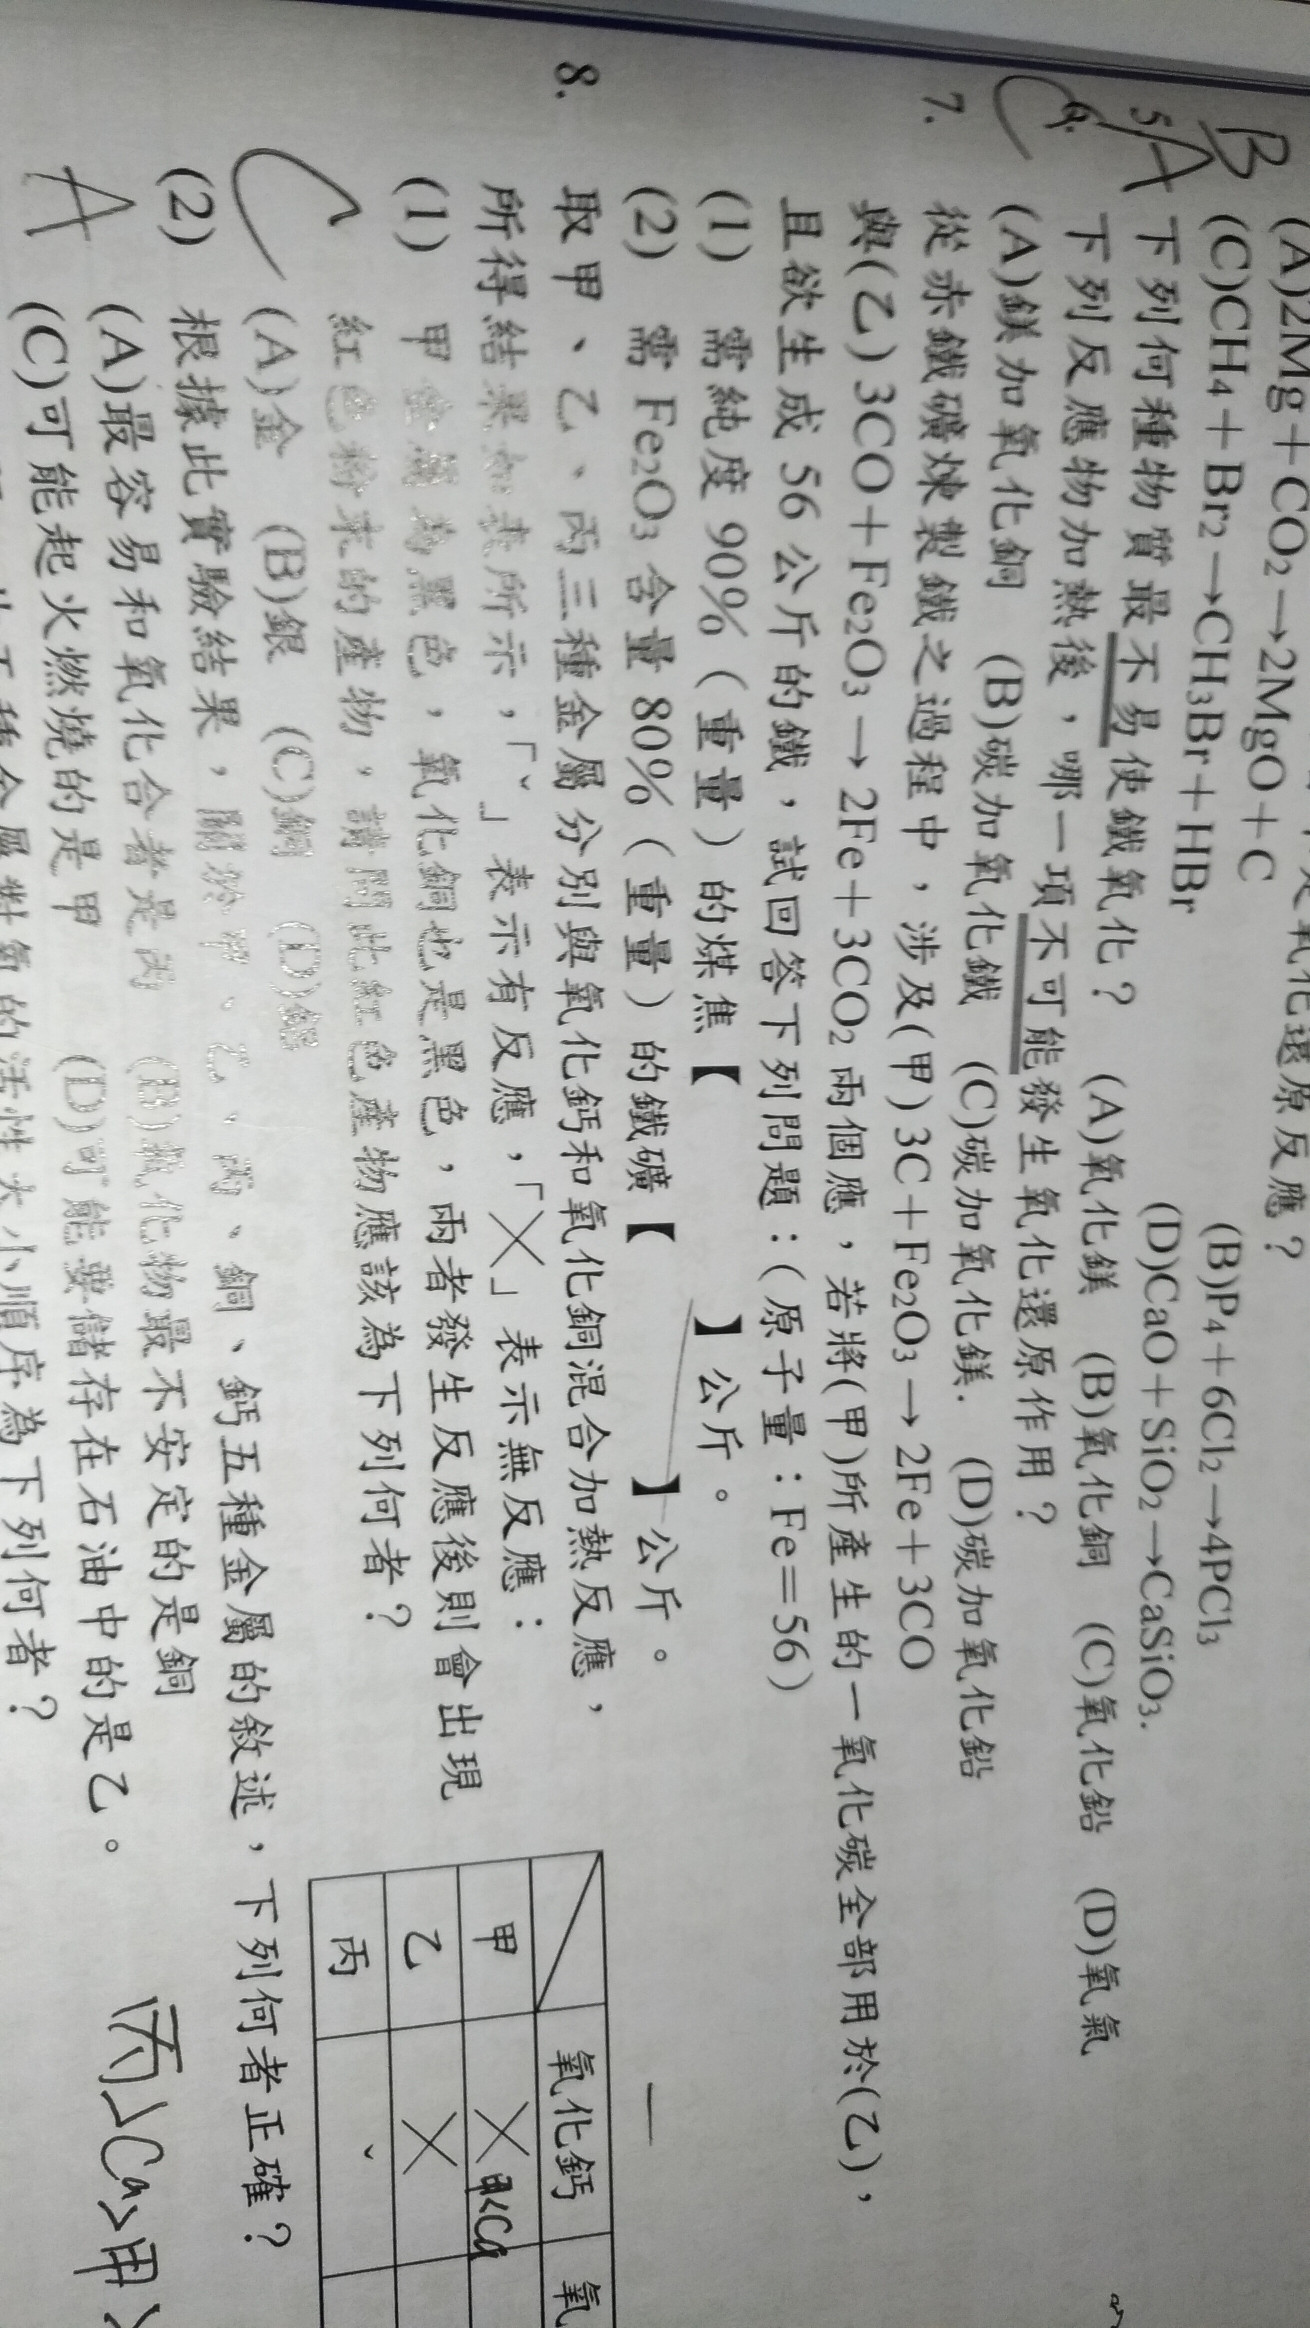 是氧化還原反應？
(A)2Mg＋CO2→2MgO＋C (B)P4＋6Cl2→4PCl3
B (C)CH4＋Br2→CH3Br＋HBr (D)CaO＋SiO2→CaSiO3.
A 5. 下列何種物質最不易使鐵氧化？ (A)氧化鎂 (B)氧化銅 (C)氧化鉛 (D)氧氣
C 6. 下列反應物加熱後，哪一項不可能發生氧化還原作用？
(A)鎂加氧化銅 (B)碳加氧化鐵 (C)碳加氧化鎂. (D)碳加氧化鉛
7. 從赤鐵礦煉製鐵之過程中，涉及(甲)3C＋Fe2O3→2Fe＋3CO
與(乙)3CO＋Fe2O3→2Fe＋3CO2 兩個應，若將(甲)所產生的一氧化碳全部用於(乙)，
且欲生成 56 公斤的鐵，試回答下列問題：(原子量：Fe＝56)
(1) 需純度 90%（重量）的煤焦【 】公斤。
(2) 需 Fe2O3 含量 80%（重量）的鐵礦【 】公斤。
8. 取甲、乙、丙三種金屬分別與氧化鈣和氧化銅混合加熱反應，
所得結果如表所示，「ˇ」表示有反應，「╳」表示無反應：
(1) 甲金屬為黑色，氧化銅也是黑色，兩者發生反應後則會出現
紅色粉末的產物，請問此紅色產物應該為下列何者？
C (A)金 (B)銀 (C)銅 (D)鋁
(2) 根據此實驗結果，關於甲、乙、丙、銅、鈣五種金屬的敘述，下列何者正確？
A (A)最容易和氧化合者是丙 (B)氧化物最不安定的是銅
(C)可能起火燃燒的是甲 (D)可能要儲存在石油中的是乙。
種金屬對氧的活性大小順序為下列何者？
氧化鈣 氧
甲 ╳ 甲<Ca
乙 ╳
丙 ˇ
丙>Ca>甲>